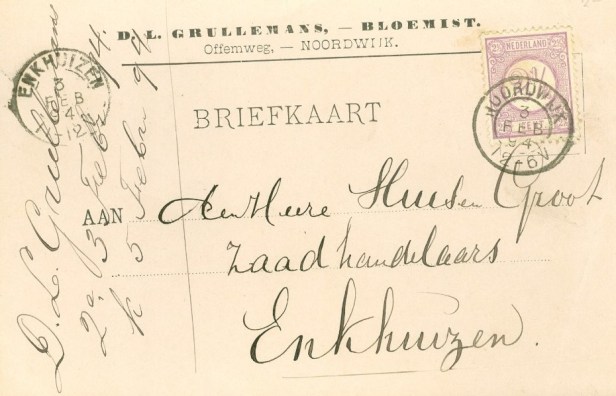 D. L. GRULLEMANS, — BLOEMIST.
Offemweg, — NOORDWIJK.
NEDERLAND
ENKHUIZEN
3
FEB
94
12
NOORDWIJK
3
FEB
94
12-6V
BRIEFKAART
AAN den Heere Sluis en Groot
Zaadhandelaars
Enkhuizen.
D. L. Grullemans
2a 3 Febr 94
k 5 Febr 94